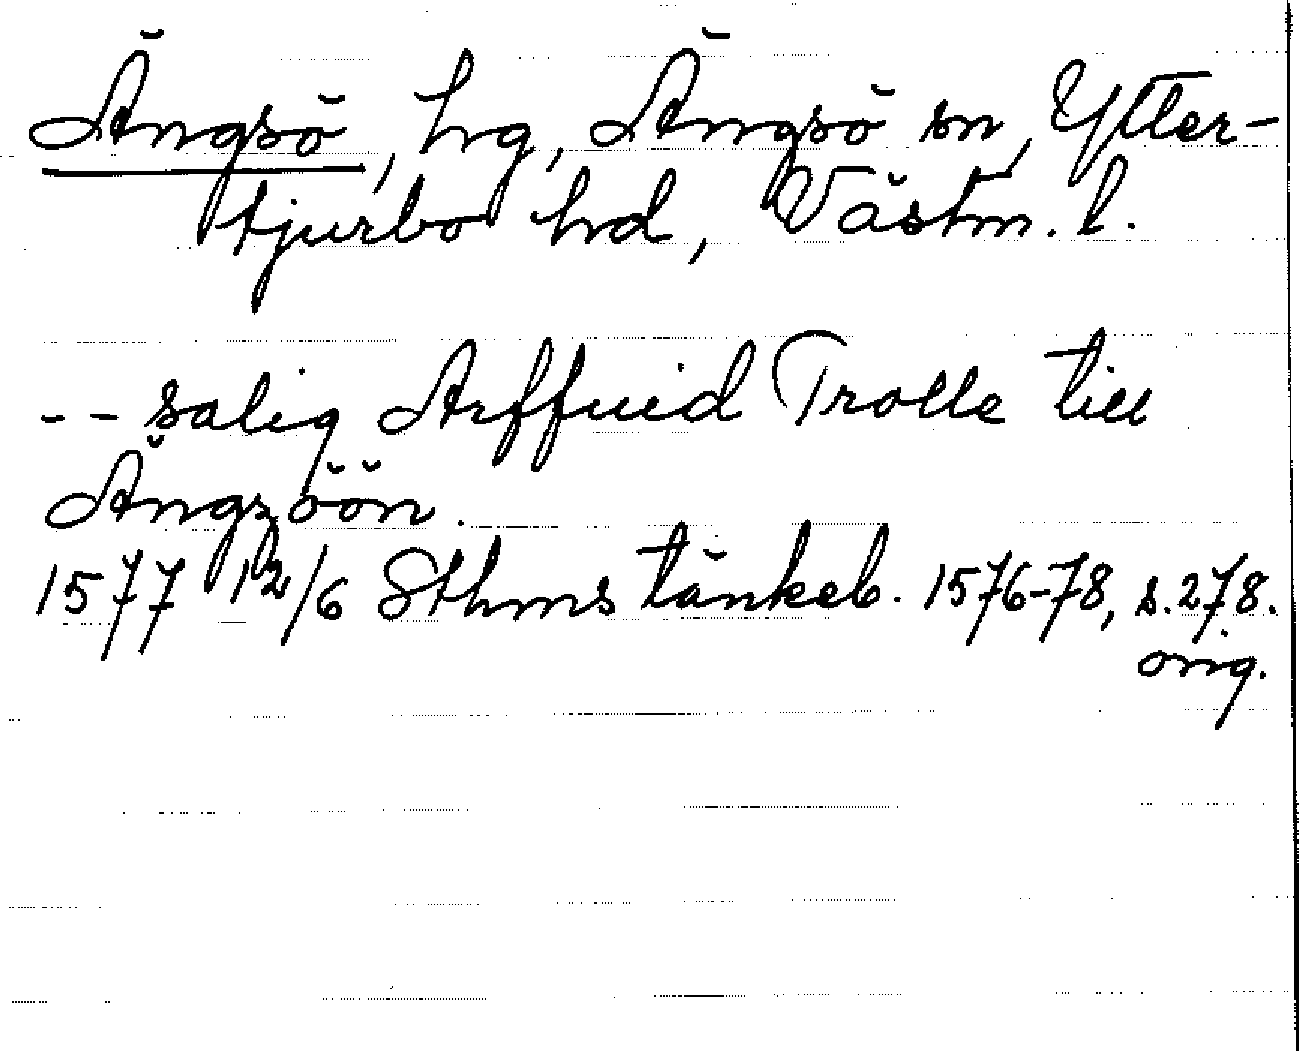 Ängsö, hg, Ängsö sn, Ytter-
tjurbo hd, Västm. l.
-- salig Arffued Trolle till
Ängzöön.
1577 12/6 Sthms tänkeb. 1576-78, s. 278.
orig.